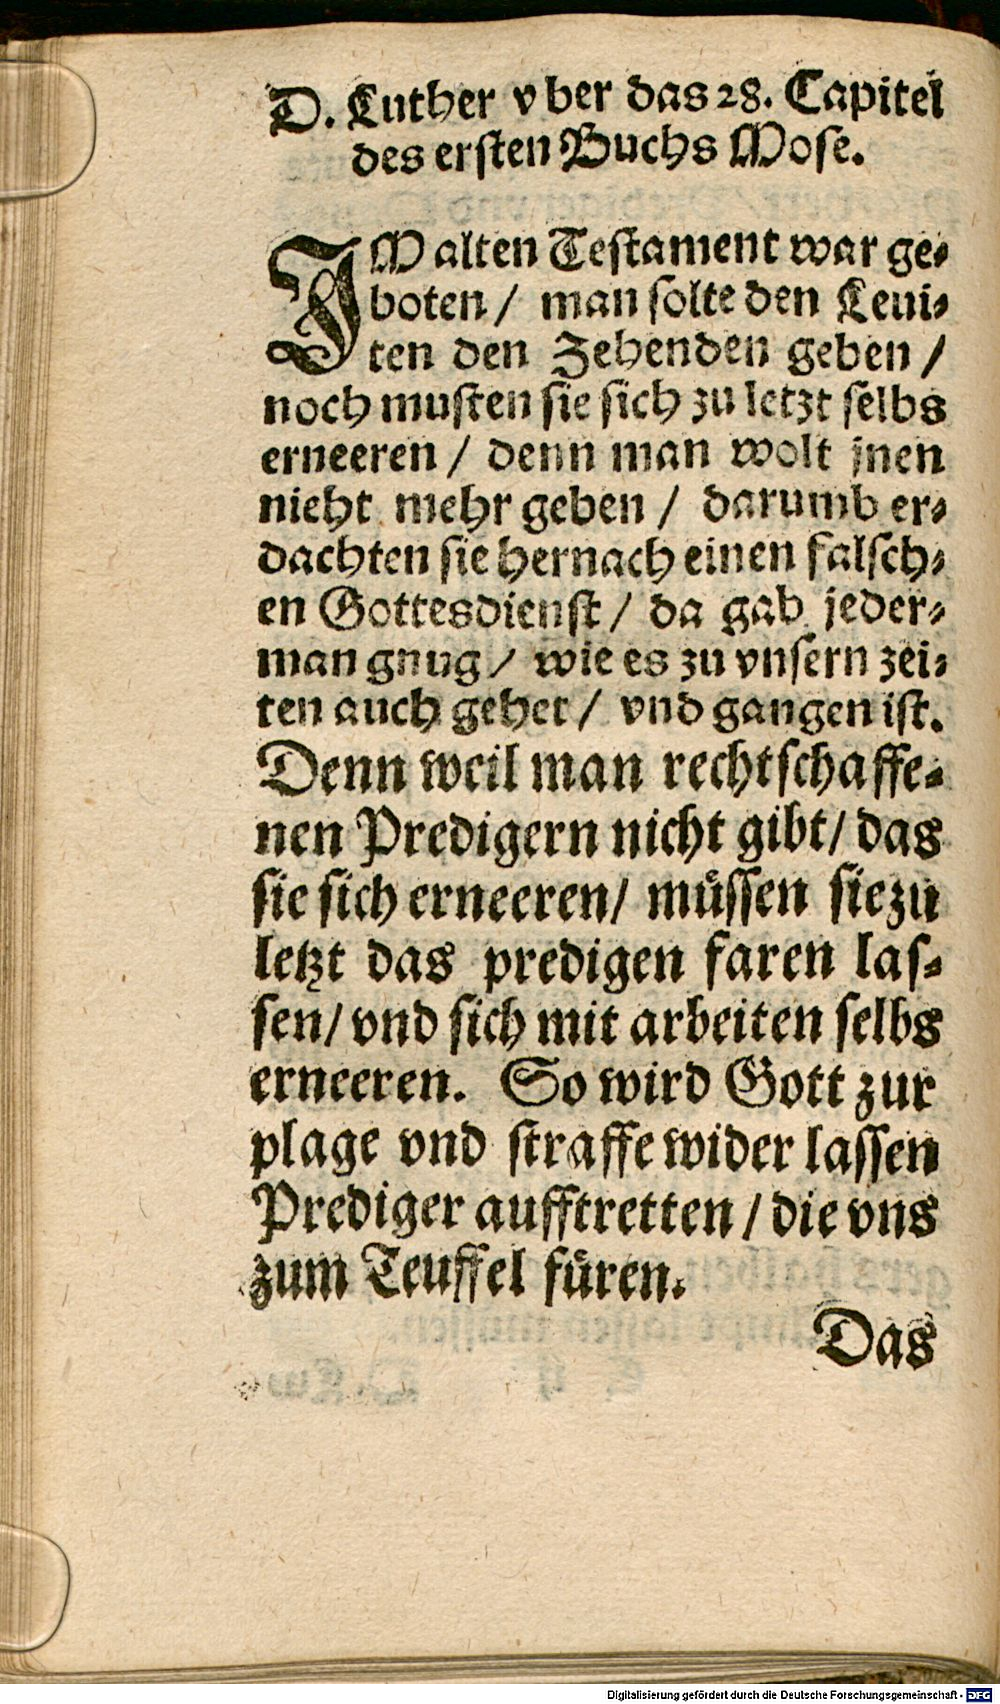 D. Luther vber das 28. Capitel
des ersten Buchs Mose.
IM alten Testament war ge⸗
boten / man solte den Leui⸗
ten den Zehenden geben /
noch musten sie sich zu letzt selbs
erneeren / denn man wolt jnen
nicht mehr geben / darumb er⸗
dachten sie hernach einen falsch⸗
en Gottesdienst / da gab jeder⸗
man gnug / wie es zu vnsern zei⸗
ten auch gehet / vnd gangen ist.
Denn weil man rechtschaffe⸗
nen Predigern nicht gibt / das
sie sich erneeren / müssen sie zu
letzt das predigen faren las⸗
sen / vnd sich mit arbeiten selbs
erneeren. So wird Gott zur
plage vnd straffe wider lassen
Prediger aufftretten / die vns
zum Teuffel füren.
Das
Digitalisierung gefördert durch die Deutsche Forschungsgemeinschaft - DFG